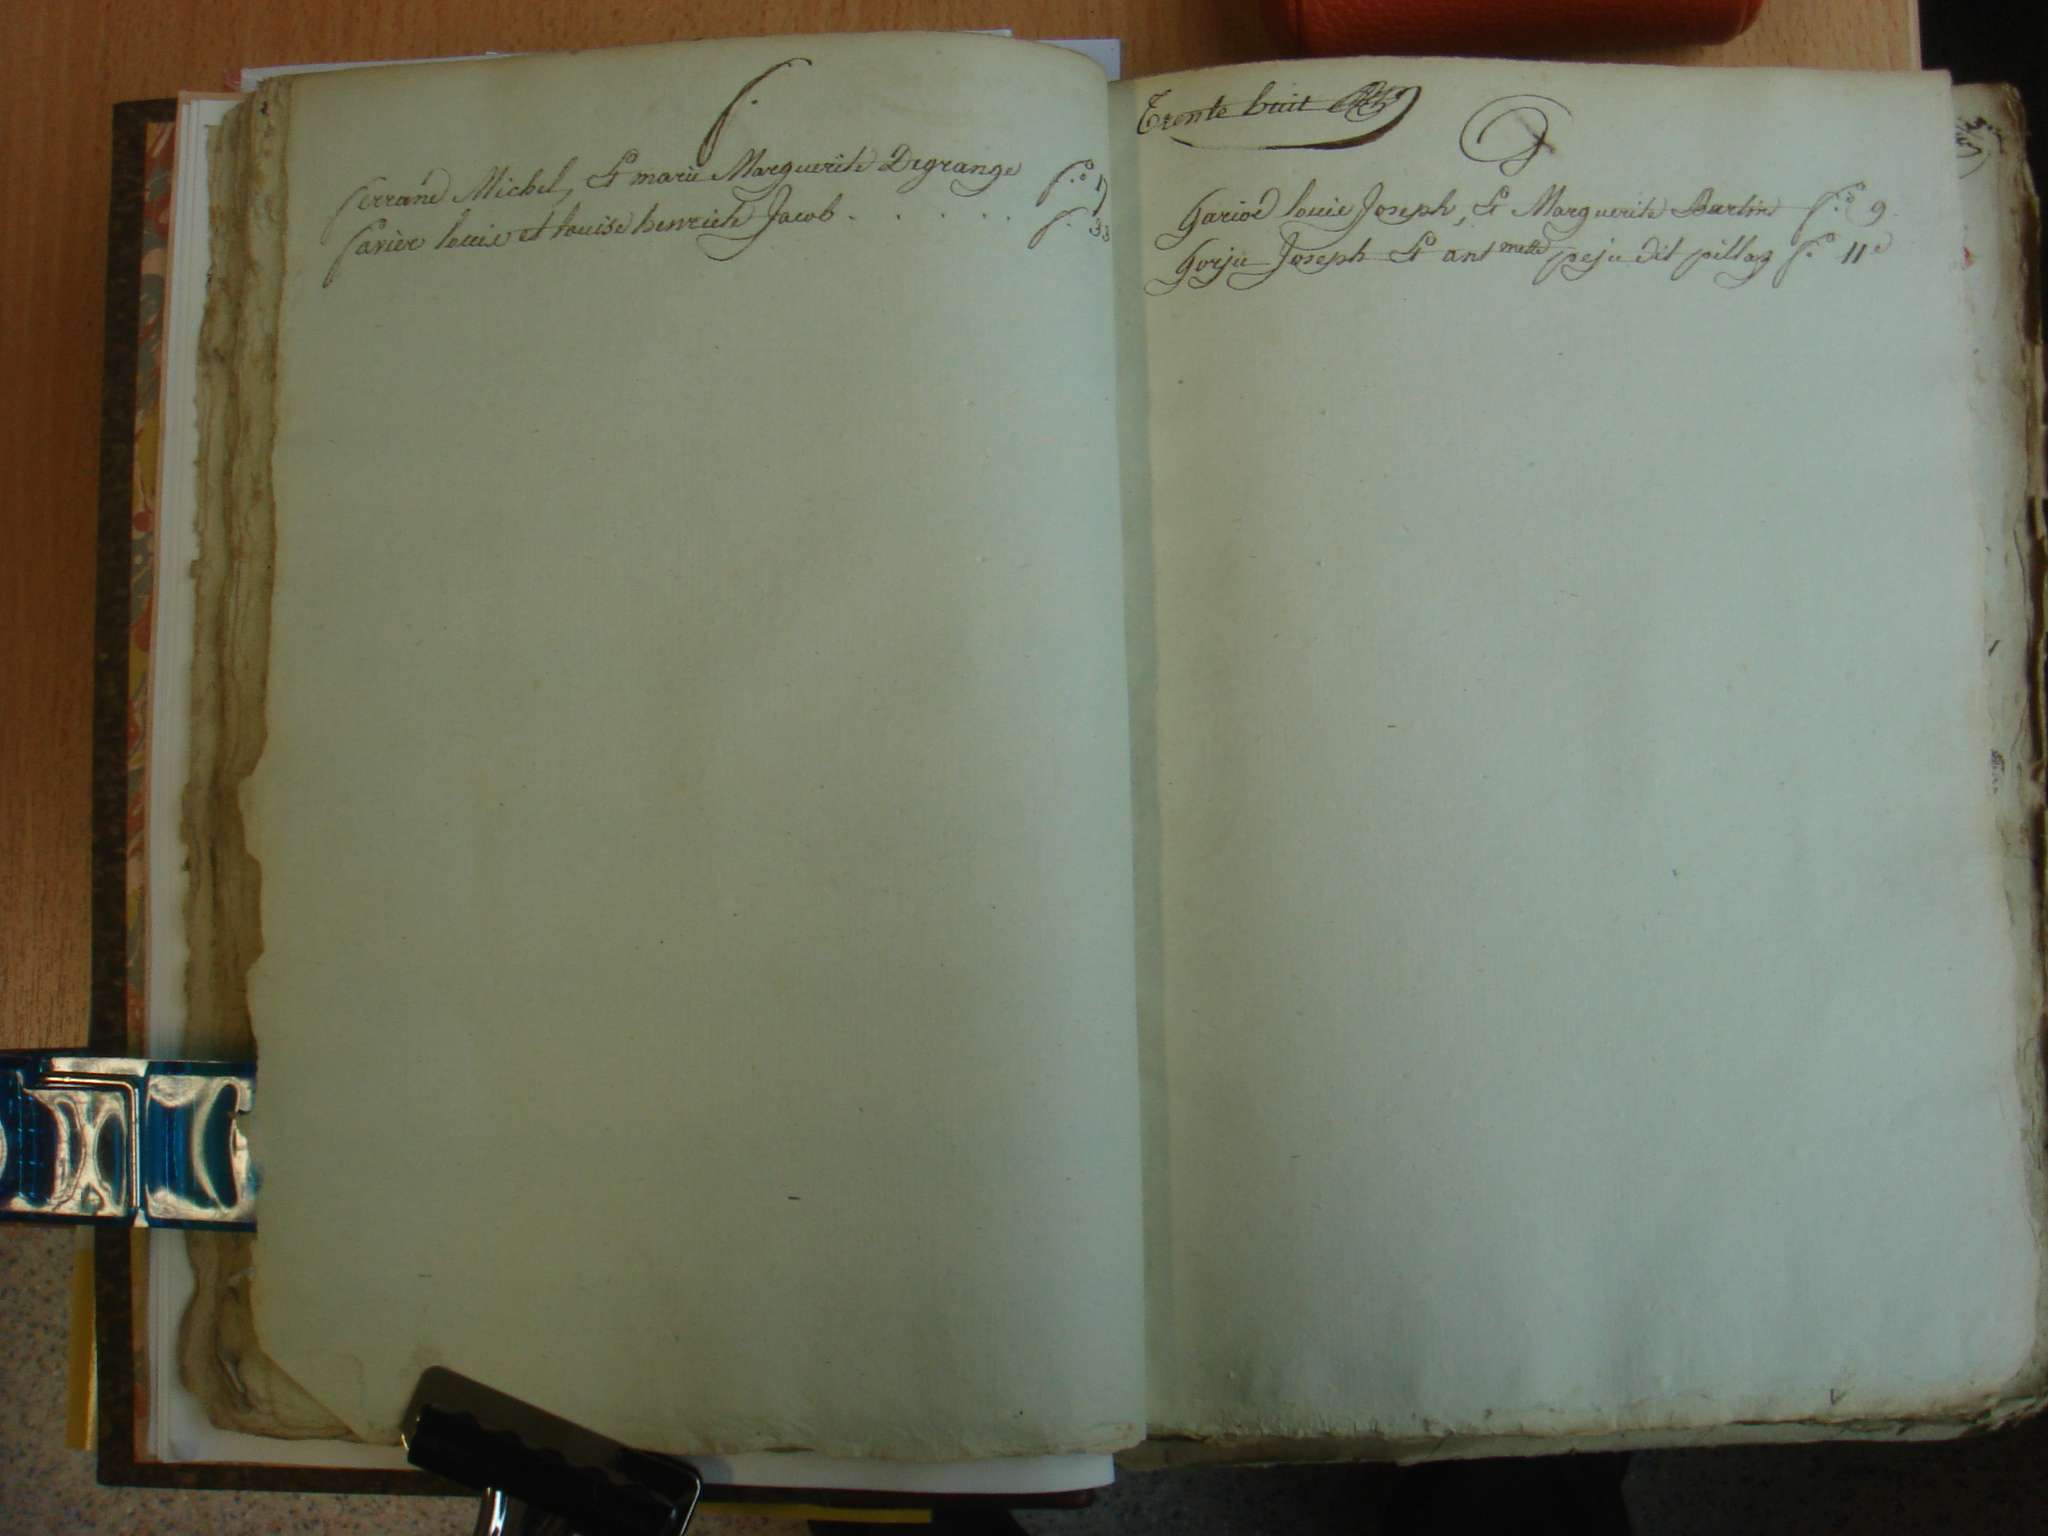 f.
ferrand Michel, Et marie Marguerite Degrange f.o 17
favier louis et louise henriete Jacob . . . . . f. 33
Trente huit
G
Gariod louis Joseph, Et Marguerite Bertin f.o 9
Gorju Joseph Et ant mette peju dit pillag f.o 11